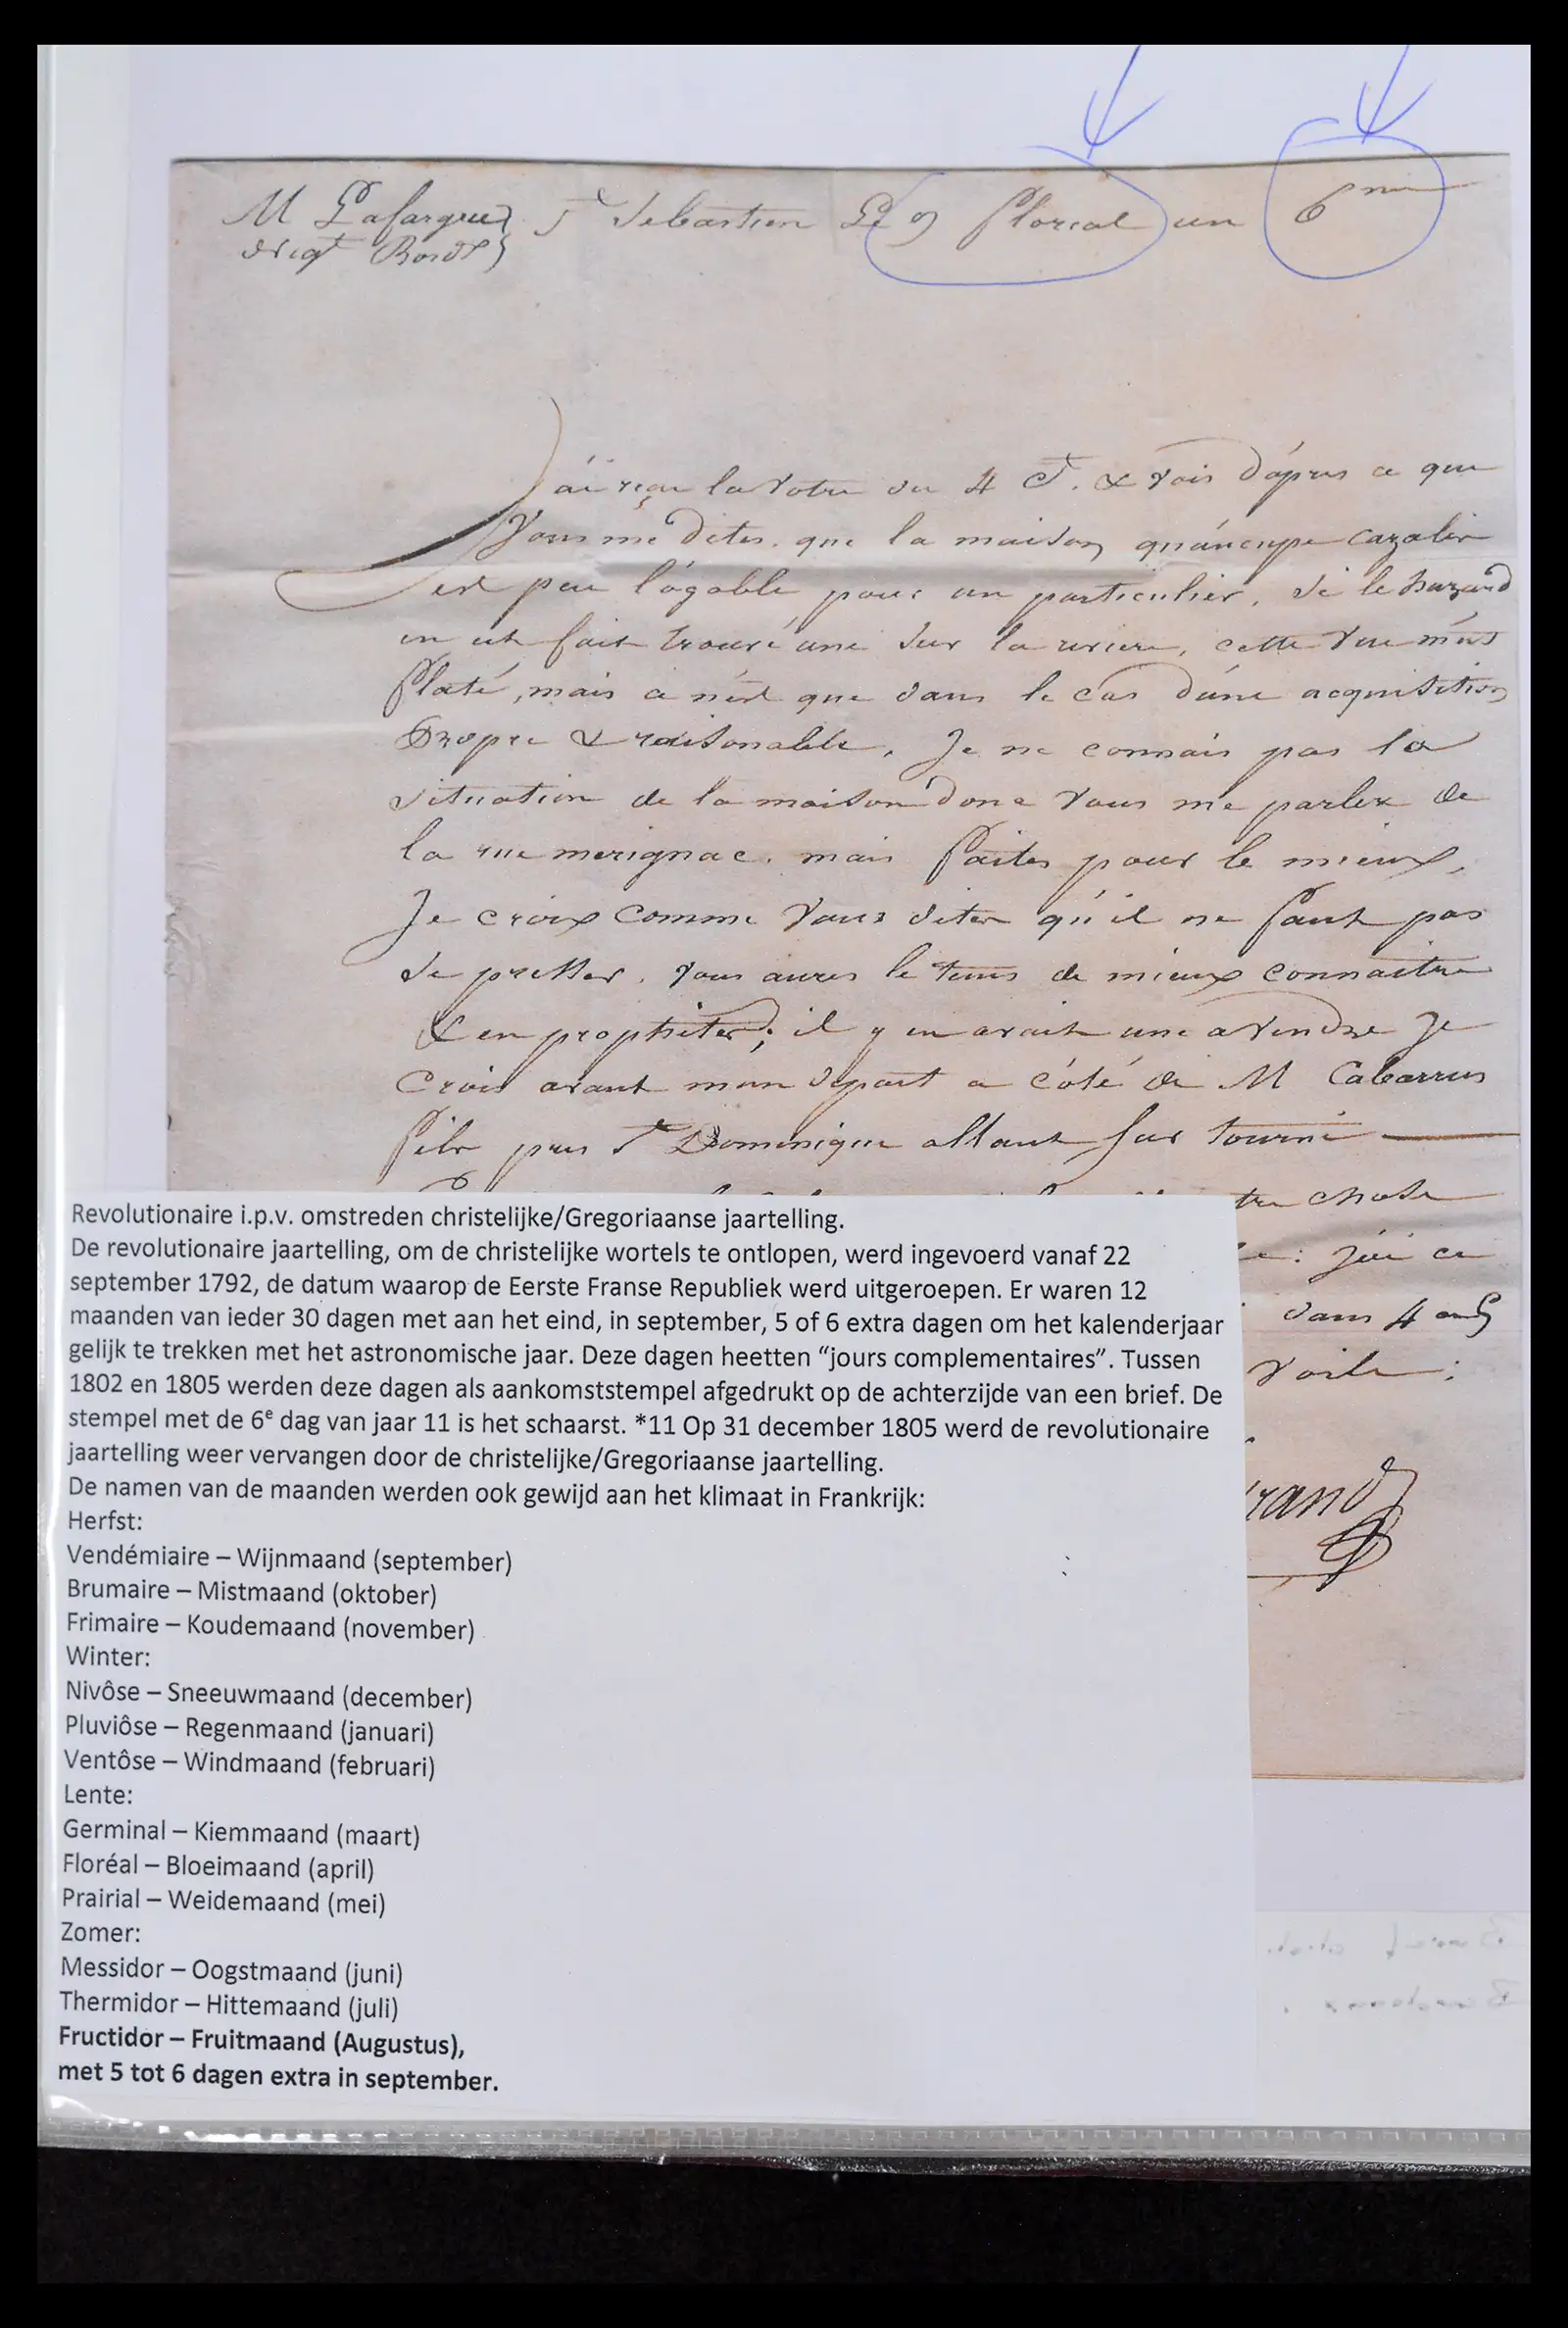 M Lafargue St Sebastien Le 9 floreal an 6me
Negt Bordx
J'ai reçu la votre du 4 Ct. & vois d'apres ce que
Vous me dites, que la maison qu'áucupe Cazalis
est peu logable pour un particulier, si le hazard
en ut fait trouvé une sur la riviere, cette vue m'eus
flaté, mais ce n'est que dans le cas d'une acquisition
Propre & raisonable, Je ne connais pas la
situation de la maison dont vous me parlex de
la rue merignac, mais faites pour le mieux,
Je croix comme Vous dites qu'il ne faut pas
se presser, vous aures le tems de mieux connaitre
& en prophiter; il y en avait une a vendre Je
Crois avant mon depart a côté de M Cabarrus
fils pres St Dominique allant sur tourni
chose
: j'ai ce
dans 4 ou 5
voile;
rand
Revolutionaire i.p.v. omstreden christelijke/Gregoriaanse jaartelling.
De revolutionaire jaartelling, om de christelijke wortels te ontlopen, werd ingevoerd vanaf 22
september 1792, de datum waarop de Eerste Franse Republiek werd uitgeroepen. Er waren 12
maanden van ieder 30 dagen met aan het eind, in september, 5 of 6 extra dagen om het kalenderjaar
gelijk te trekken met het astronomische jaar. Deze dagen heetten “jours complementaires”. Tussen
1802 en 1805 werden deze dagen als aankomststempel afgedrukt op de achterzijde van een brief. De
stempel met de 6e dag van jaar 11 is het schaarst. *11 Op 31 december 1805 werd de revolutionaire
jaartelling weer vervangen door de christelijke/Gregoriaanse jaartelling.
De namen van de maanden werden ook gewijd aan het klimaat in Frankrijk:
Herfst:
Vendémiaire – Wijnmaand (september)
Brumaire – Mistmaand (oktober)
Frimaire – Koudemaand (november)
Winter:
Nivôse – Sneeuwmaand (december)
Pluviôse – Regenmaand (januari)
Ventôse – Windmaand (februari)
Lente:
Germinal – Kiemmaand (maart)
Floréal – Bloeimaand (april)
Prairial – Weidemaand (mei)
Zomer:
Messidor – Oogstmaand (juni)
Thermidor – Hittemaand (juli)
Fructidor – Fruitmaand (Augustus),
met 5 tot 6 dagen extra in september.